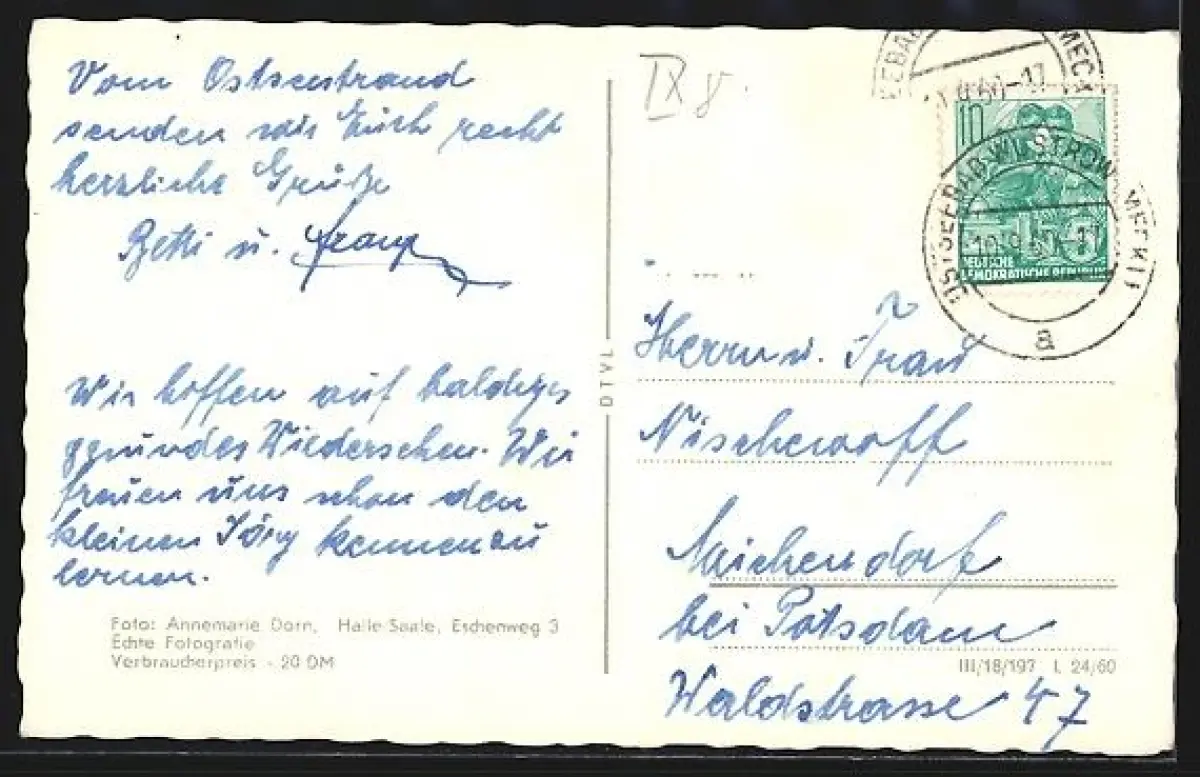 Vom Ostseestrand
senden wir Euch recht
herzliche Grüße
Betti u. Franz
Wir hoffen auf baldiges
gesundes Wiedersehen. Wir
freuen uns schon den
kleinen Jörg kennen zu
lernen.
Foto: Annemarie Dorn, Halle Saale, Eschenweg 3
Echte Fotografie
Verbraucherpreis -.20 DM
DTVL
IX
10
DEUTSCHE
DEMOKRATISCHE REPUBLIK
OSTSEEBAD WUSTROW MECKL
10.9.60-17
a
Herrn u. Frau
Nischewoff
Michendorf
bei Potsdam
III/18/197 L 24/60
Waldstrasse 47